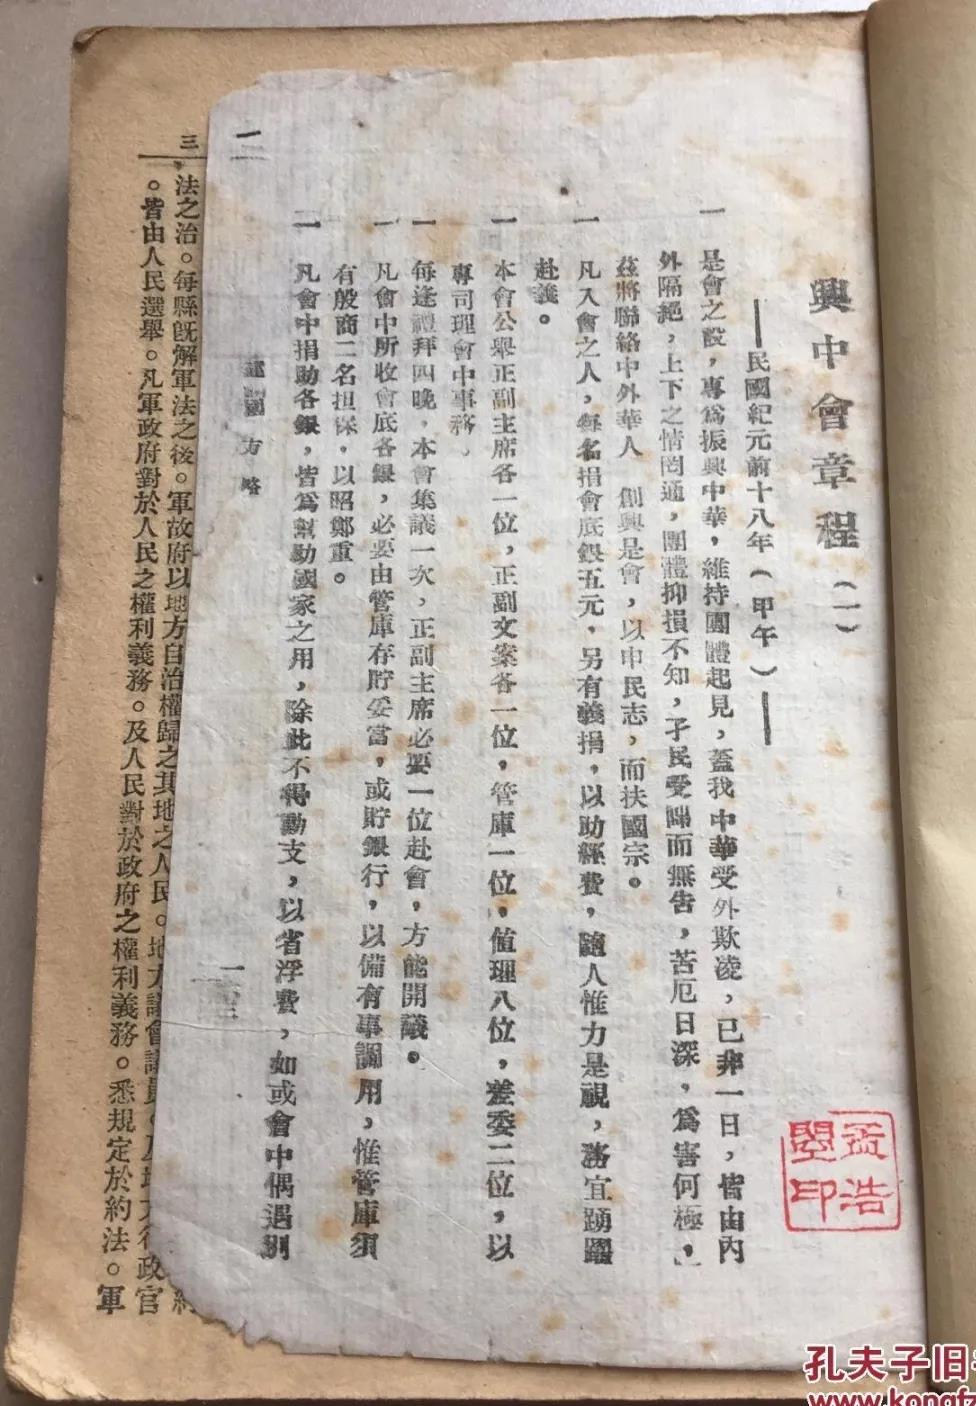 興中會章程(一)
——民國紀元前十八年(甲午)——
一 是會之設，專為振興中華，維持團體起見，蓋我中華受外欺凌，已非一日，皆由內
外隔絕，上下之情罔通，團體抑損不知，子民受制而無告，苦厄日深，為害何極，
茲將聯絡中外華人 創興是會，以申民志，而扶國宗。
一 凡入會之人，每名捐會底銀五元，另有義捐，以助經費，隨人惟力是視，務宜踴躍
赴義。
一 本會公舉正副主席各一位，正副文案各一位，管庫一位，值理八位，差委二位，以
專司理會中事務，
一 每逢禮拜四晚，本會集議一次，正副主席必要一位赴會，方能開議。
一 凡會中所收會底各銀，必要由管庫存貯妥當，或貯銀行，以備有事調用，惟管庫須
有殷商二名担保，以昭鄭重。
一 凡會中捐助各銀，皆為幫助國家之用，除此不得動支，以省浮費，如或會中偶遇別
建國方略
三
法之治。每縣既解軍法之後。軍政府以地方自治權歸之其地之人民。地方議會議員。及地方行政官
。皆由人民選舉。凡軍政府對於人民之權利義務。及人民對於政府之權利義務。悉規定於約法。軍
孟浩
印
孔夫子旧书
www.kongfz